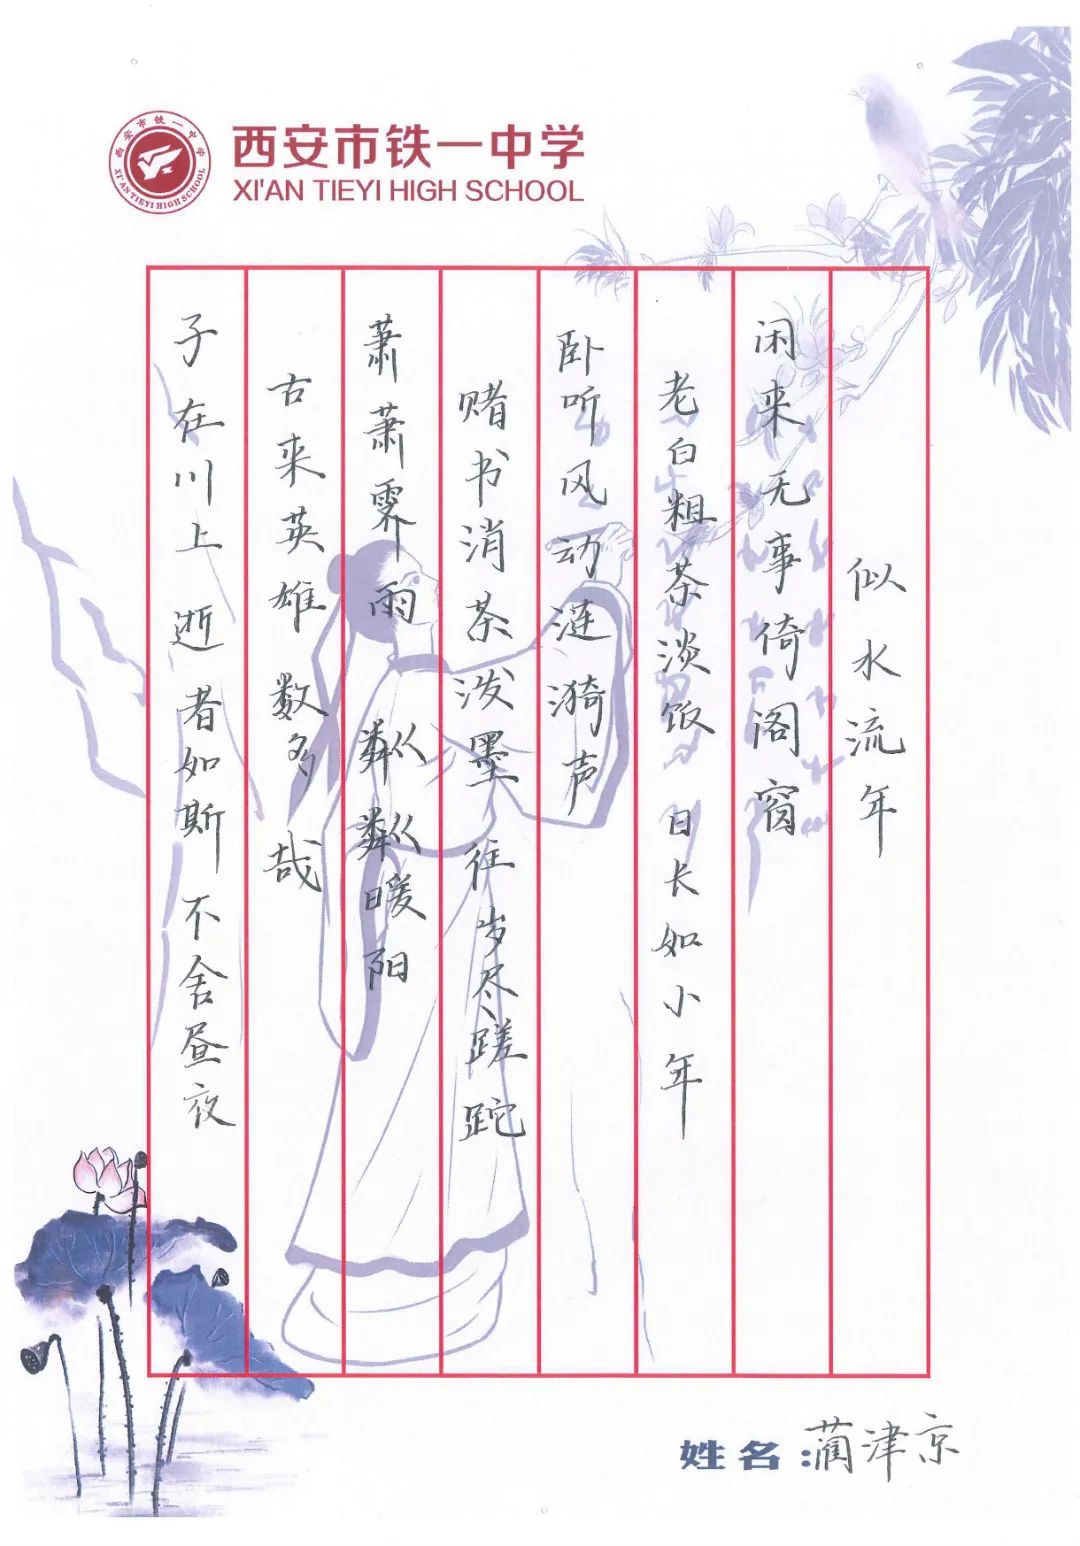 西安市铁一中学
XI'AN TIEYI HIGH SCHOOL
西安市铁一中学
XI'AN TIEYI HIGH SCHOOL
似水流年
闲来无事倚阁窗
老白粗茶淡饭 日长如小年
卧听风动涟漪声
赌书消茶泼墨 往岁尽蹉跎
萧萧霁雨 粼粼暖阳
古来英雄 数多哉
子在川上 逝者如斯 不舍昼夜
姓名:蔺津京